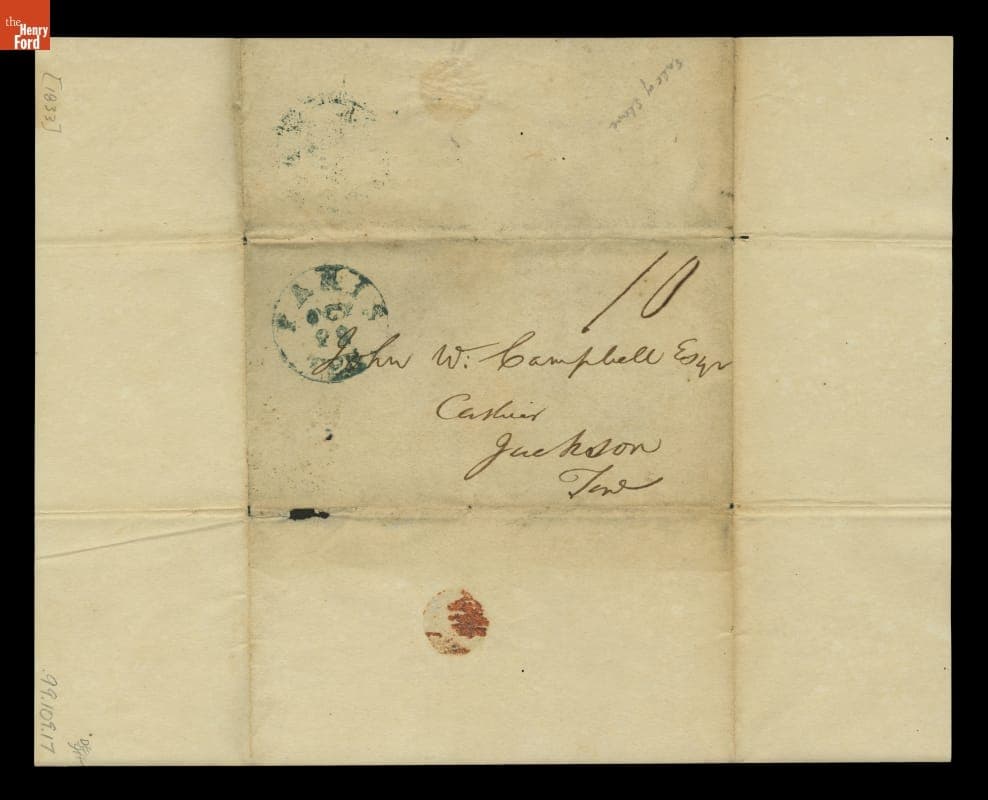 the
Henry
Ford
[1833]
Sale of Slave
10
PARIS
OCT
TEN
John W. Campbell Esqr
Cashier
Jackson
Ten
99.109.17